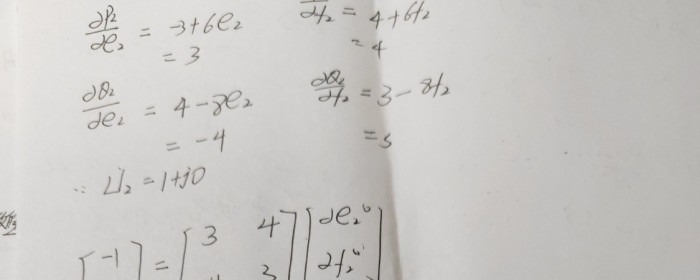 ∂P₂/∂e₂ = -3+6e₂
= 3
∂f₂ = 4+6f₂
= 4
∂Q₂/∂e₂ = 4-8e₂
= -4
∂Q₂/∂f₂ = 3-8f₂
= 3
∴ U̇₂ = 1+j0
[-1] = [3 4 3] [∂e₂⁰ ∂f₂⁰]